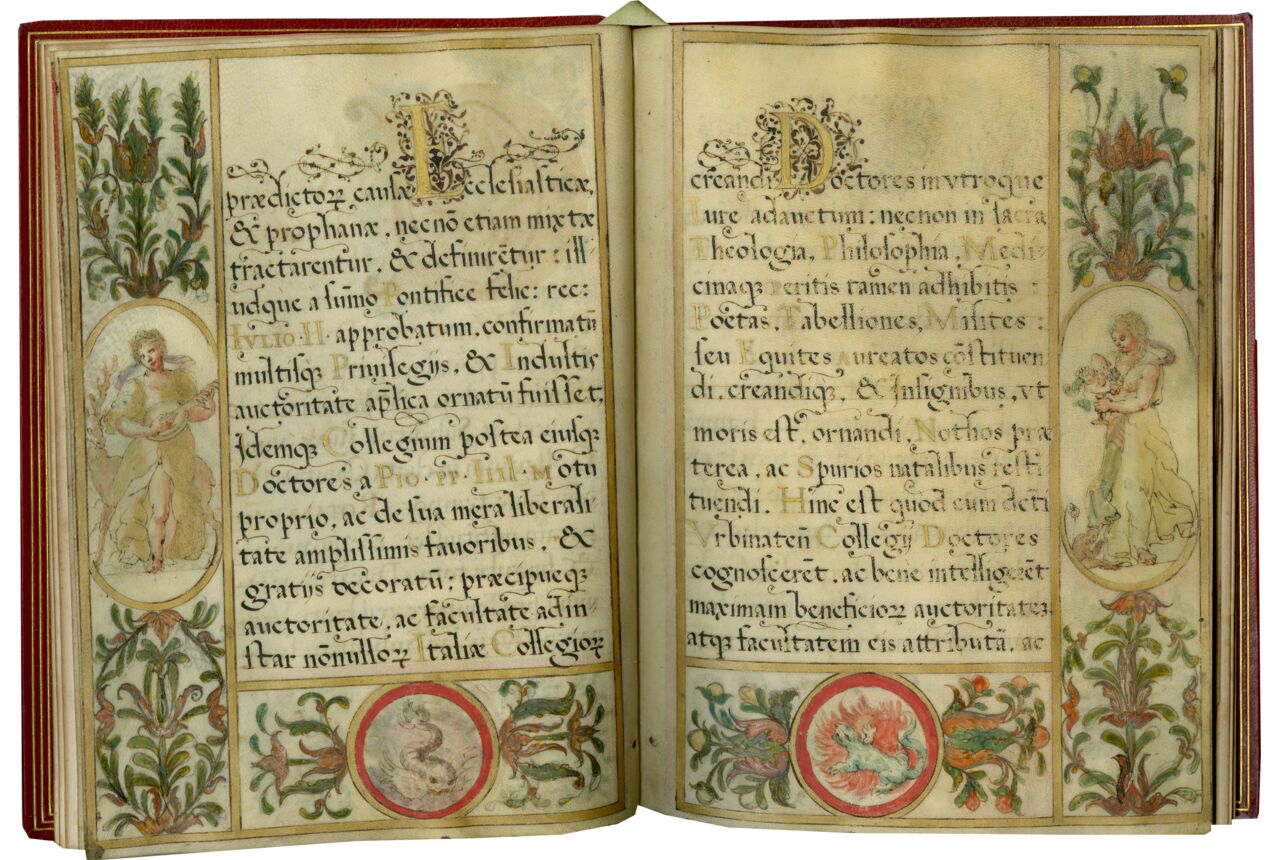 prædictoꝝ causæ Ecclesiasticæ,
& prophanæ, necnõ etiam mixtæ
tractarentur, & definirẽtur : ill-
udque a sũmo Pontifice felic: rec:
IVLIO · II · approbatum, confirmatũ
multisq; Priuilegijs, & Indultis
auctoritate ap̃lica ornatũ fuisset,
Idemq; Collegium postea eiusq;
Doctores a PIO · PP · IIII · Motu
proprio, ac de sua mera liberali-
tate amplissimis fauoribus, &
gratijs decoratũ; præcipueq;
auctoritate, ac facultate ad in-
star nõnulloꝝ Italiæ Collegioꝝ
creandi Doctores in vtroque
Iure adauctum: necnon in sacra
Theologia, Philosophia, Medi-
cinaq; peritis tamen adhibitis :
Poetas, Tabelliones, Milites :
seu Equites aureatos cõstituen
di, creandiq;, & Insignibus, vt
moris est, ornandi, Nothos præ
terea, ac Spurios natalibus resti
tuendi. Hinc est quod cum dc̃ti
Vrbinateñ Collegij Doctores
cognoscerẽt, ac bene intelligerẽt
maximam beneficioꝝ auctoritatẽ,
atq; facultatem eis attributã, ac